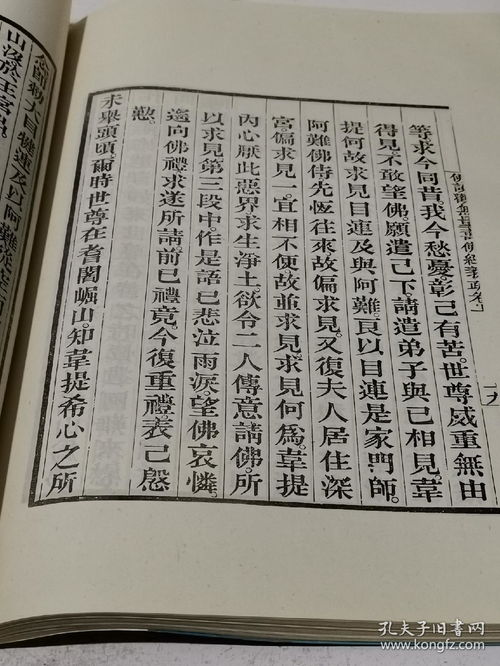 佛說觀無量壽佛經義疏卷
十九
等求今同昔我今愁憂彰己有苦世尊威重無由
得見不敢望佛願遣已下請遣弟子與已相見韋
提何故求見目連及與阿難良以目連是家門師
阿難佛侍先恆往來故偏求見又復夫人居住深
宮偏求見一宜相不便故並求見求見何為韋提
內心厭此惡界求生淨土欲令二人傳意請佛所
以求見第三段中作是語已悲泣雨淚望佛哀憐
遙向佛禮求遂所請前已禮竟今復重禮表已慇
懃
未舉頭頃爾時世尊在耆闍崛山知韋提希心之所
大目犍連及以阿難從空
山沒於王宮出
孔夫子旧书网
www.kongfz.com